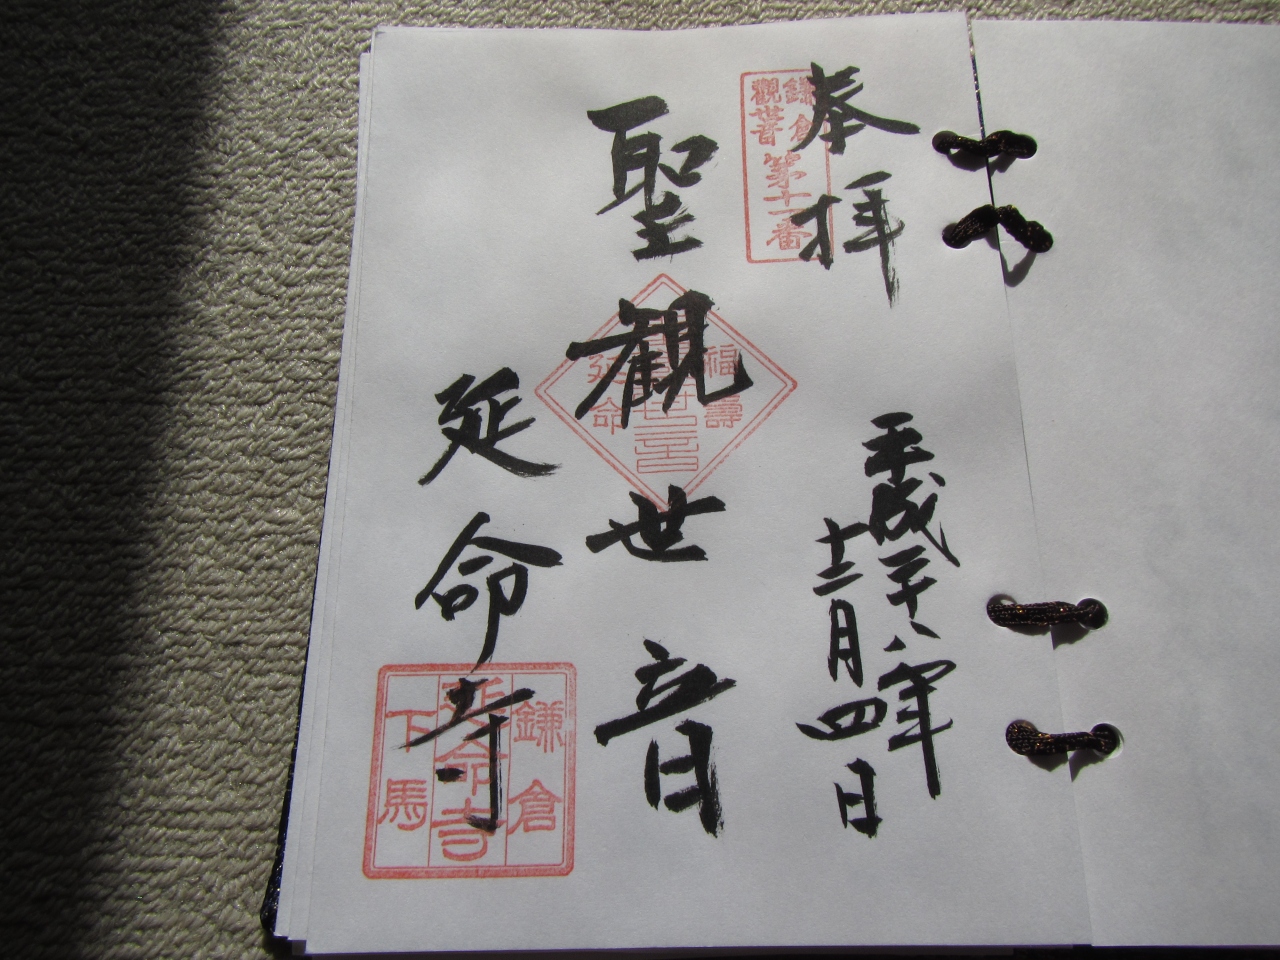 奉拝
平成二十八年
十二月四日
鎌倉
觀世音
第十一番
聖観世音
福壽
世音
延命
延命寺
鎌倉
延命寺
下馬